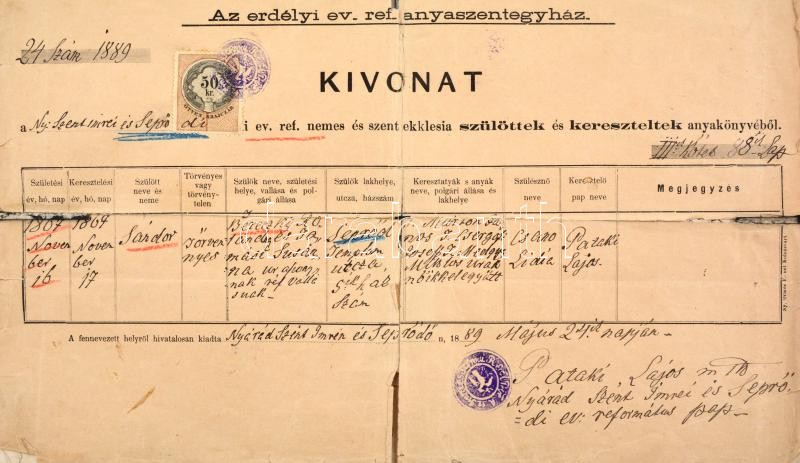 Az erdélyi ev. ref. anyaszentegyház.
24 Szám 1889
50
kr.
KIVONAT
a Ny. Szent imrei és Seprődi ev. ref. nemes és szent ekklesia szülöttek és kereszteltek anyakönyvéből.
IIId Kötet 38d Lap
Születési év, hó, nap
Keresztelési év, hó, nap
Szülött neve és neme
Törvényes vagy törvénytelen
Szülők neve, születési helye, vallása és polgári állása
Szülők lakhelye, utcza, házszám
Keresztatyák s anyák neve, polgári állása és lakhelye
Szülésznő neve
Keresztelő pap neve
Megjegyzés
1867 November 16
1867 November 17
Sándor
Törvényes
Bereczky
Susánna
ref vallásuak
Seprőd
Templom utcza
Szám
Márton
József
Miklós urak
nőikkel együtt
Csáno Lidia
Pataki Lajos.
A fennevezett helyről hivatalosan kiadta Nyárád Szent Imrén és Seprődön, 1889 Május 24id napján
Pataki Lajos
Nyárád Szent Imrei és Seprő-
di ev: református pap